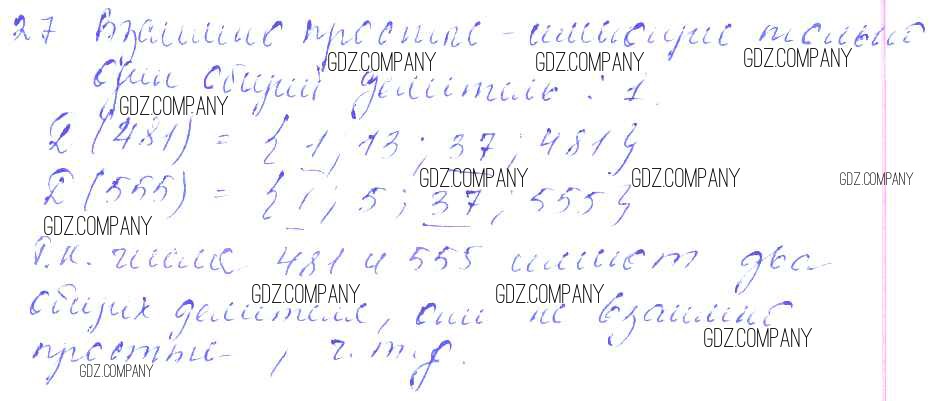 27 Взаимно простые - имеющие только
GDZ.COMPANY GDZ.COMPANY GDZ.COMPANY
один общий делитель : 1.
GDZ.COMPANY
D (481) = {1; 13; 37; 481}
GDZ.COMPANY GDZ.COMPANY GDZ.COMPANY
D (555) = {1; 5; 37; 555}
GDZ.COMPANY
Т.к. числа 481 и 555 имеют два
GDZ.COMPANY GDZ.COMPANY
общих делителя, они не взаимно
GDZ.COMPANY
простые , ч.т.д.
GDZ.COMPANY